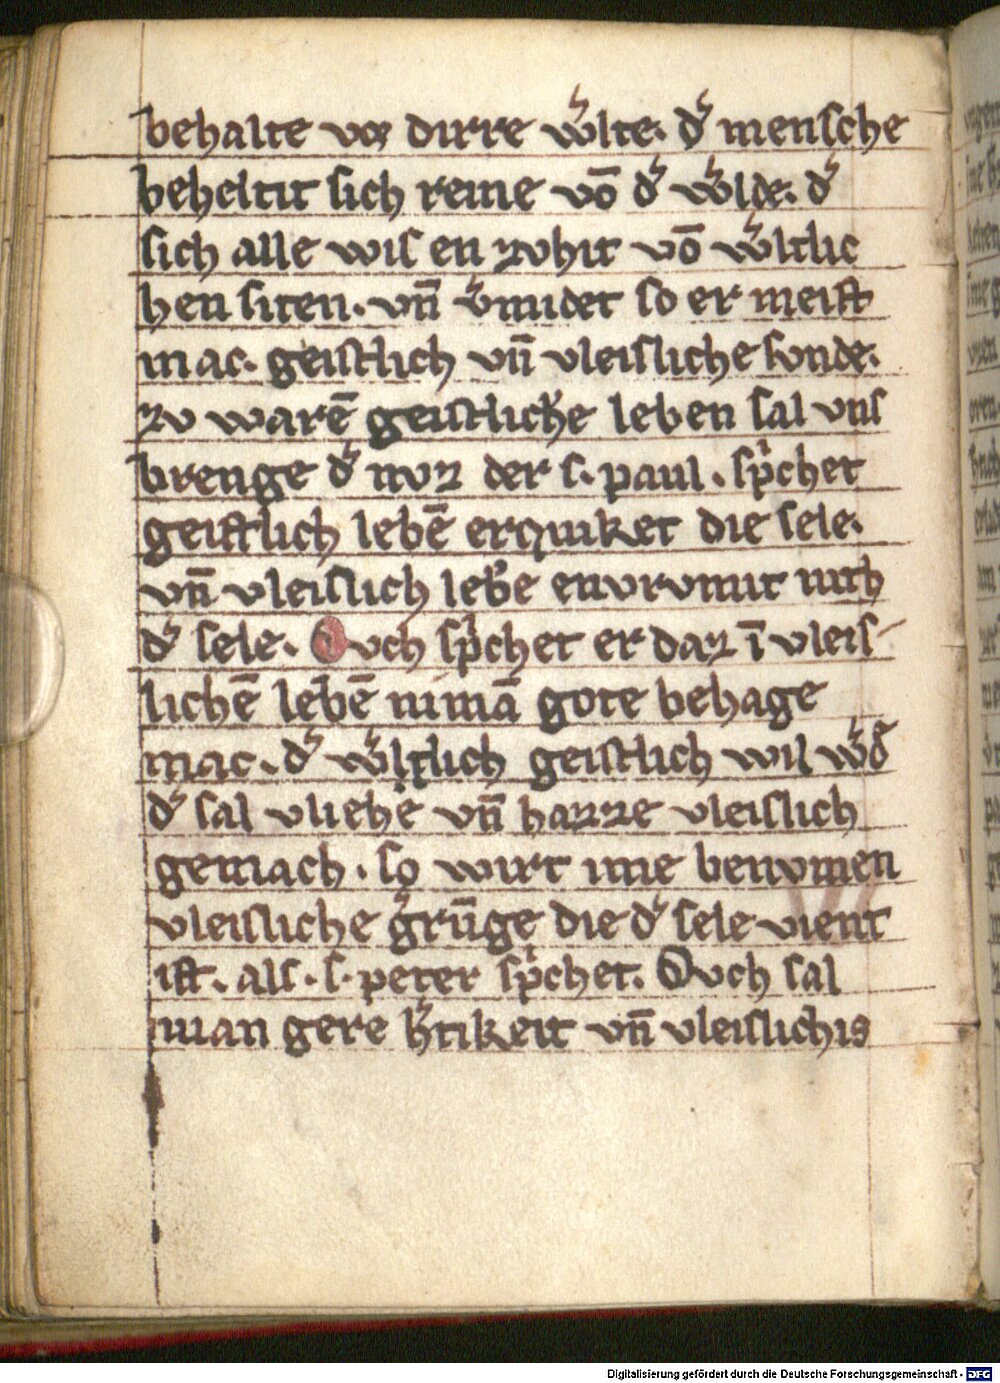 behalte vor dirre w͛lte. d͛ mensche
beheltit sich reine võ d͛ w͛lde. d͛
sich alle wis en zvhit võ w͛ltlic
hen siten. vñ v͛midet so er meist
mac. geistlich vñ vleisliche sonde.
zv warē geistlich͛e leben sal vns
brenge d͛ wvz der s. paul. sp͛chet
geistlich lebē erquiket die sele.
vñ vleislich lebē envrvmit nith
d͛ sele. Ovch sp͛chet er daz ī vleis
lichē lebē nimā gote behage
mac. d͛ w͛ltlich geistlich wil w͛d͛
d͛ sal vliehē vñ hazze vleislich
gemach. so wirt ime benvmen
vleisliche g͛rūge die d͛ sele vient
ist. als. s. peter sp͛chet. Ovch sal
man gere h͛tikeit vñ vleislichis
Digitalisierung gefördert durch die Deutsche Forschungsgemeinschaft - DFG